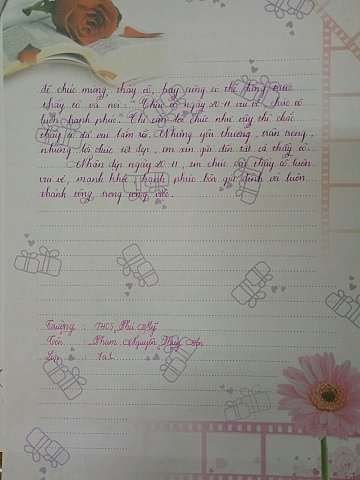 để chúc mừng thầy cô, hay cũng có thể đứng trước
thầy cô và nói: "Chúc cô ngày 20 11 vui vẻ, chúc cô
luôn hạnh phúc." Chỉ cần lời chúc như vậy thì chắc
thầy cô đã vui lắm rồi. Những yêu thương, trân trọng,
những lời chúc tốt đẹp, em xin gửi đến tất cả thầy cô.
Nhân dịp ngày 20 11, em chúc các thầy cô luôn
vui vẻ, mạnh khỏe, hạnh phúc bên gia đình và luôn
thành công trong công việc.
Trường : THCS Phú Mỹ
Tên : Phạm Nguyễn Thúy An
Lớp : 7a1